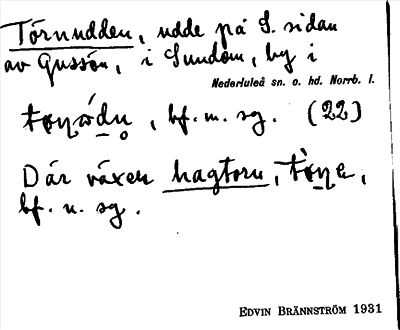 Törnudden, udde på S. sidan
av Gussön, i Sundom, by i
Nederluleå sn. o. hd. Norrb. l.
bf. m. sg. (22)
Där växer hagtorn,
bf. n. sg.
EDVIN BRÄNNSTRÖM 1931